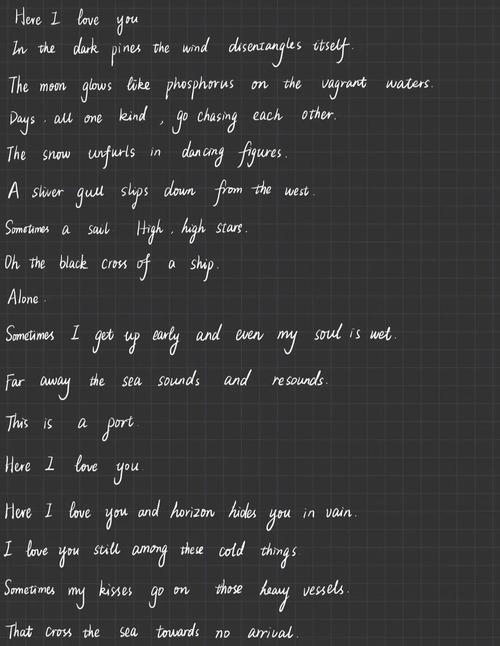 Here I love you
In the dark pines the wind disentangles itself.
The moon glows like phosphorus on the vagrant waters.
Days, all one kind, go chasing each other.
The snow unfurls in dancing figures.
A sliver gull slips down from the west.
Sometimes a sail High, high stars.
Oh the black cross of a ship.
Alone.
Sometimes I get up early and even my soul is wet.
Far away the sea sounds and resounds.
This is a port.
Here I love you.
Here I love you and horizon hides you in vain.
I love you still among these cold things
Sometimes my kisses go on those heavy vessels.
That cross the sea towards no arrival.